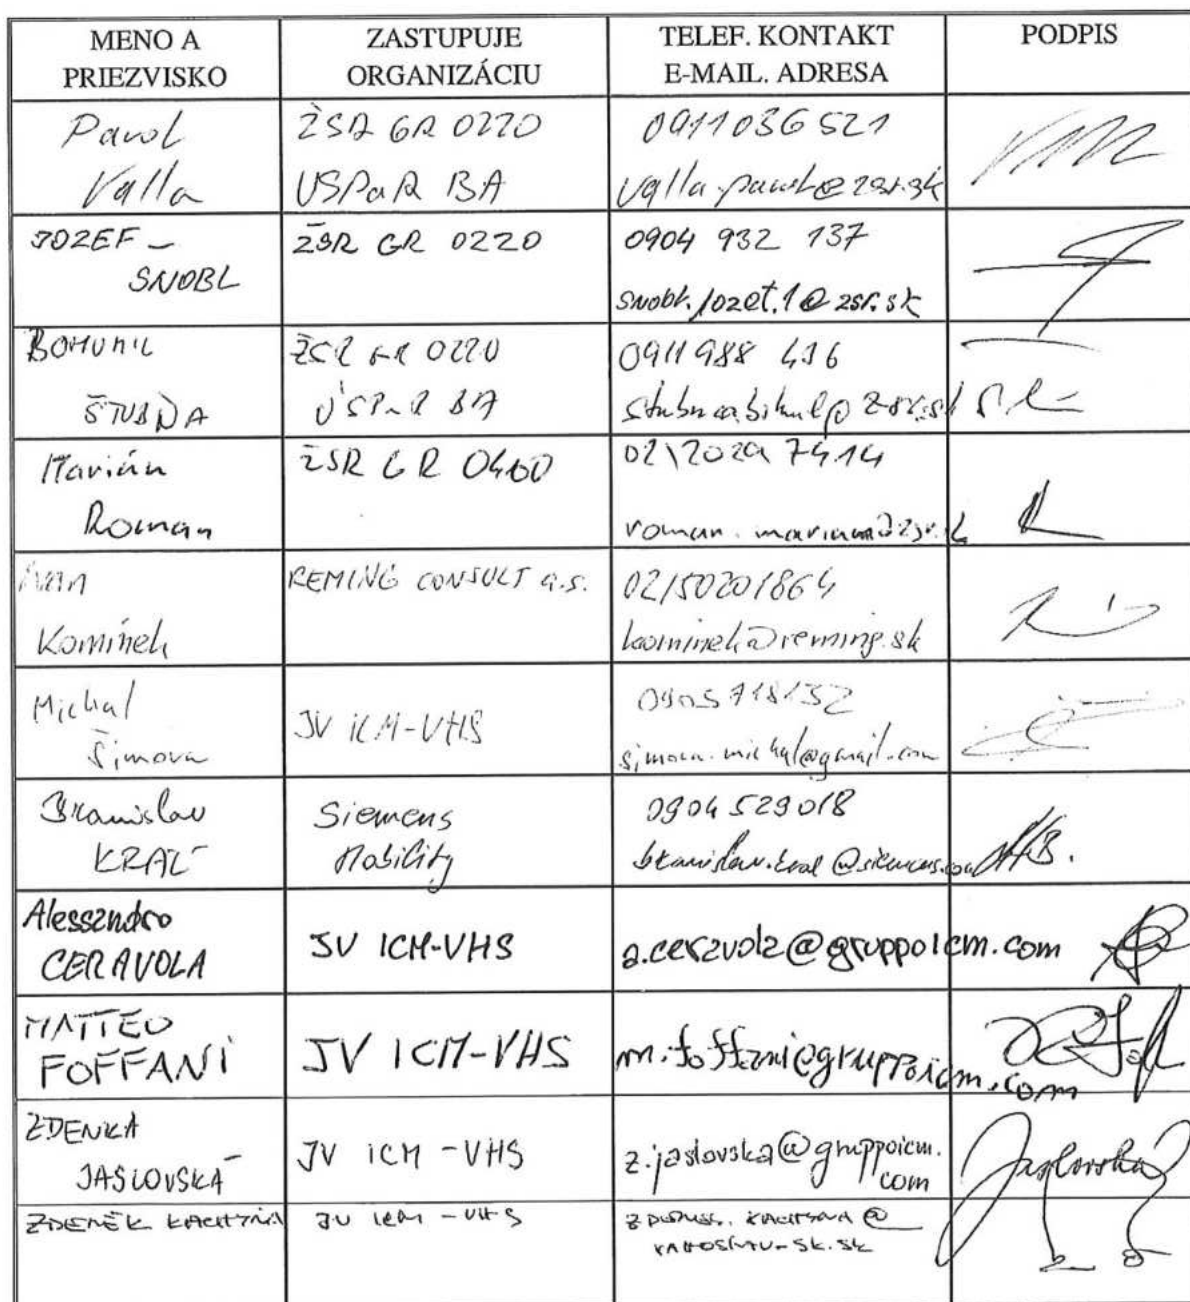 MENO A
PRIEZVISKO
ZASTUPUJE
ORGANIZÁCIU
TELEF. KONTAKT
E-MAIL. ADRESA
PODPIS
Pavol
Valla
ŽSR GR 0220
ÚSPaR BA
0911036521
valla.pavol@zsr.sk
JOZEF
SNOBL
ŽSR GR 0220
0904 932 137
snobl.jozef.1@zsr.sk
BOHUMIL
ŠTUBŇA
ŽSR GR 0220
ÚSPaR BA
0911 988 416
Marián
Roman
ŽSR GR 0460
02\2029 7414
roman.marian@zsr.sk
Ivan
Komínek
REMING CONSULT a.s.
02/50201864
kominek@reming.sk
Michal
Šimova
JV ICM-VHS
0905718132
simova.michal@gmail.com
Branislav
KRÁĽ
Siemens
Mobility
0904 529018
branislav.kral@siemens.com
Alessandro
CERAVOLA
JV ICM-VHS
a.ceravola@gruppoicm.com
MATTEO
FOFFANI
JV ICM-VHS
m.foffani@gruppoicm.com
ZDENKA
JASLOVSKÁ
JV ICM-VHS
z.jaslovska@gruppoicm.
com
Jaslovská
ZDENĚK
JV ICM-VHS